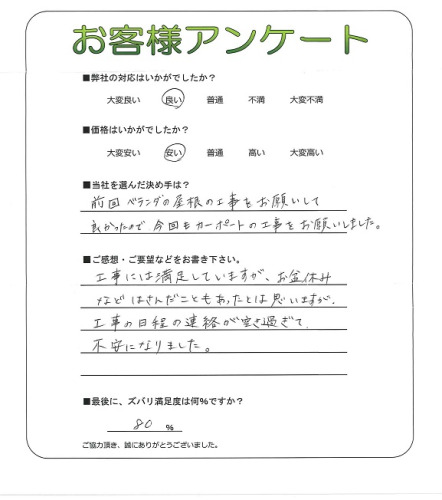 お客様アンケート
■弊社の対応はいかがでしたか？
大変良い 良い 普通 不満 大変不満
■価格はいかがでしたか？
大変安い 安い 普通 高い 大変高い
■当社を選んだ決め手は？
前回ベランダの屋根の工事をお願いして
良かったので今回もカーポートの工事をお願いしました。
■ご感想・ご要望などをお書き下さい。
工事には満足していますが、お盆休み
などはさんだこともあったとは思いますが、
工事の日程の連絡が空き過ぎて
不安になりました。
■最後に、ズバリ満足度は何％ですか？
80 ％
ご協力頂き、誠にありがとうございました。